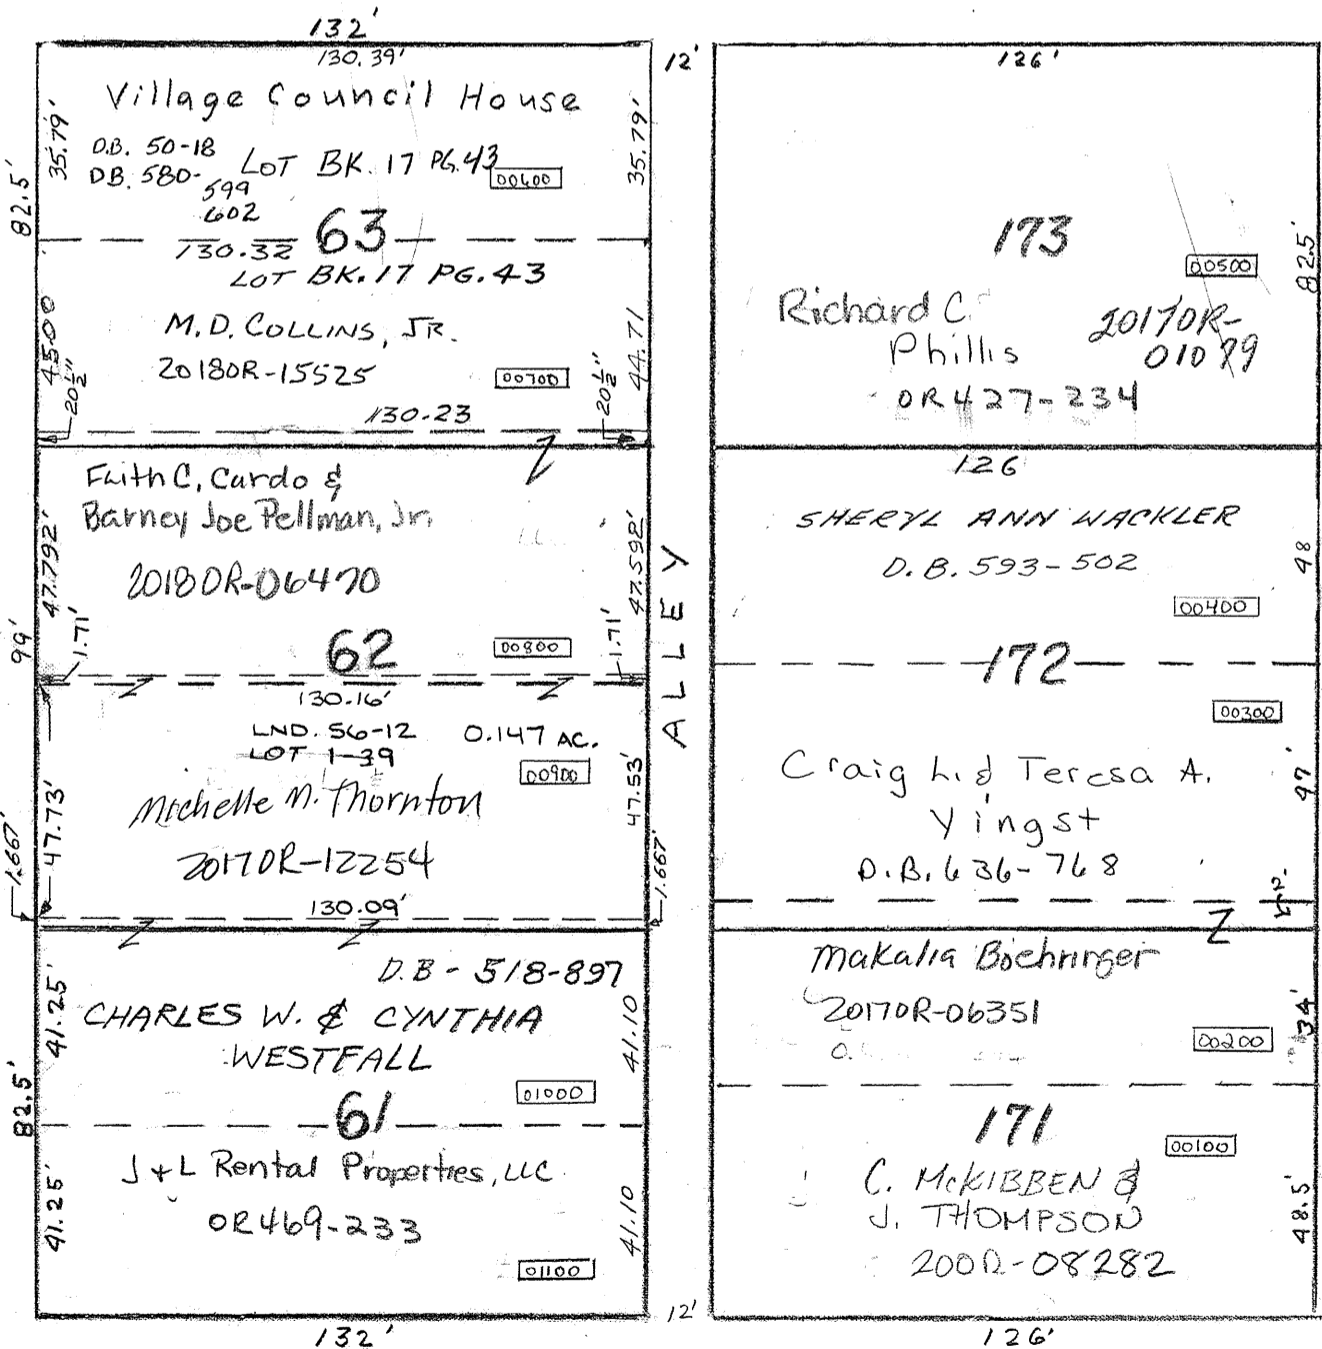 132'
130.39'
Village Council House
D.B. 50-18
DB. 580-
599
602
LOT BK. 17 PG.43
00600
35.79'
35.79'
82.5'
63
130.32
LOT BK.17 PG.43
M.D. COLLINS, JR.
2018OR-15525
00700
45.00'
20½"
20½"
44.71
130.23
Faith C. Cardo &
Barney Joe Pellman, Jr.
2018OR-06470
47.792'
47.592'
1.71'
1.71'
99'
62
00800
130.16'
LND. 56-12
0.147 AC.
LOT 1-39
00900
Michelle M. Thornton
2017OR-12254
47.73'
47.53'
1.667'
1.667'
130.09'
D.B - 518-897
CHARLES W. & CYNTHIA
WESTFALL
01000
41.25'
41.10
82.5'
61
J & L Rental Properties, LLC
OR469-233
41.25'
41.10
01100
132'
12'
ALLEY
12'
126'
173
00500
82.5'
Richard C.
Phillis
2017OR-
OR 427-234
126
SHERYL ANN WACKLER
D.B. 593-502
48
00400
172
00300
Craig L. & Teresa A.
Yingst
D.B. 636-768
47'
Makalia Boehringer
2017OR-06351
34'
00200
171
00100
C. McKIBBEN &
J. THOMPSON
200R-08282
48.5'
126'